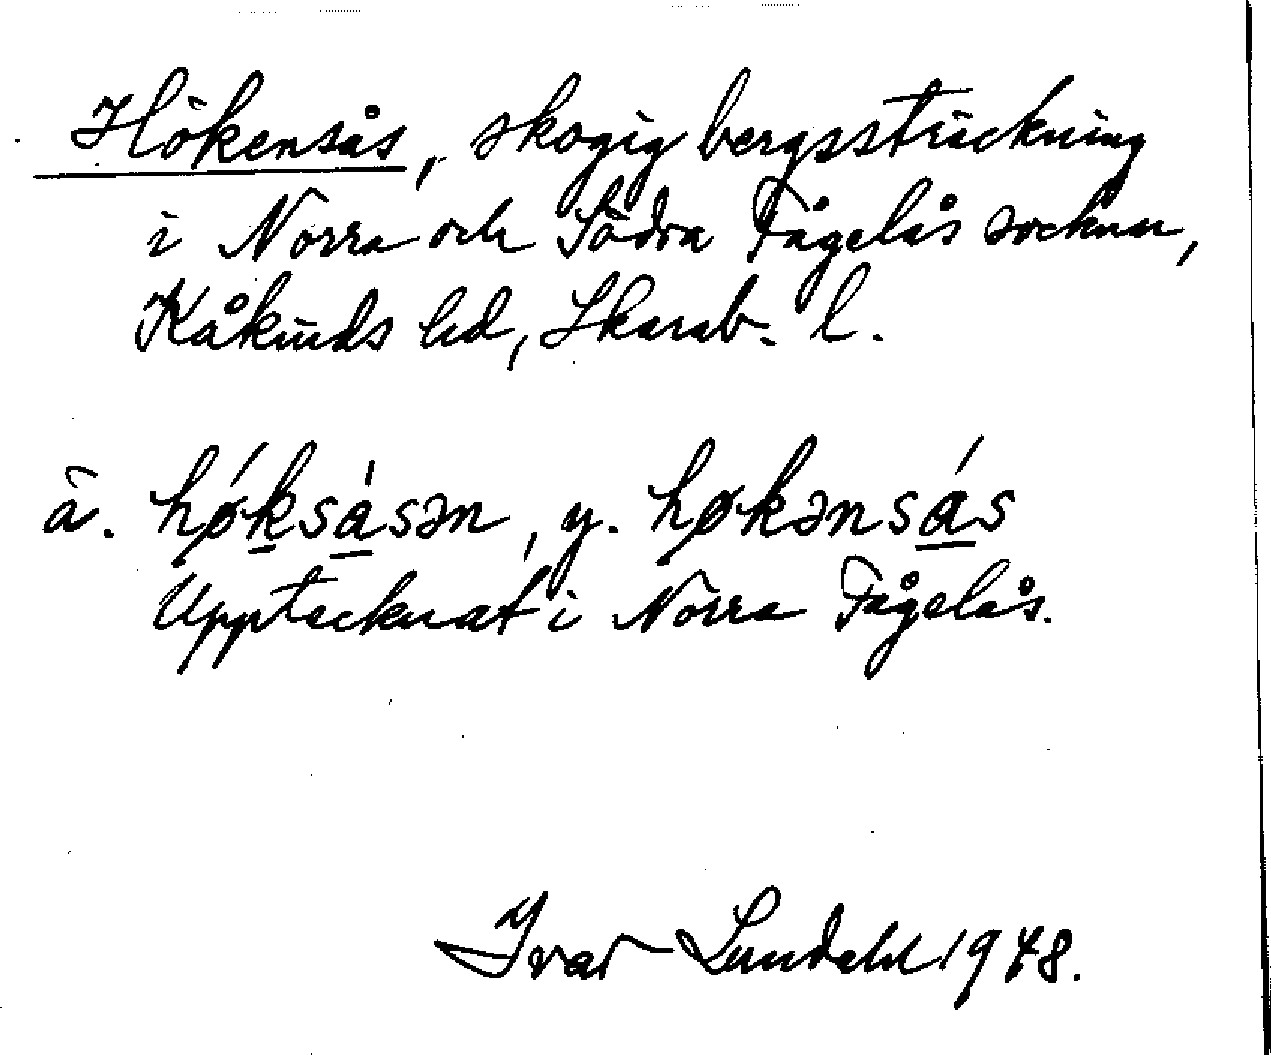 Hökensås, skogig bergssträckning
i Norra och Södra Fågelås socknar,
Kåkinds hd, Skarab. l.
ä. hǿksásən, y. høkənsás
Upptecknat i Norra Fågelås.
Ivar Lundahl 1948.